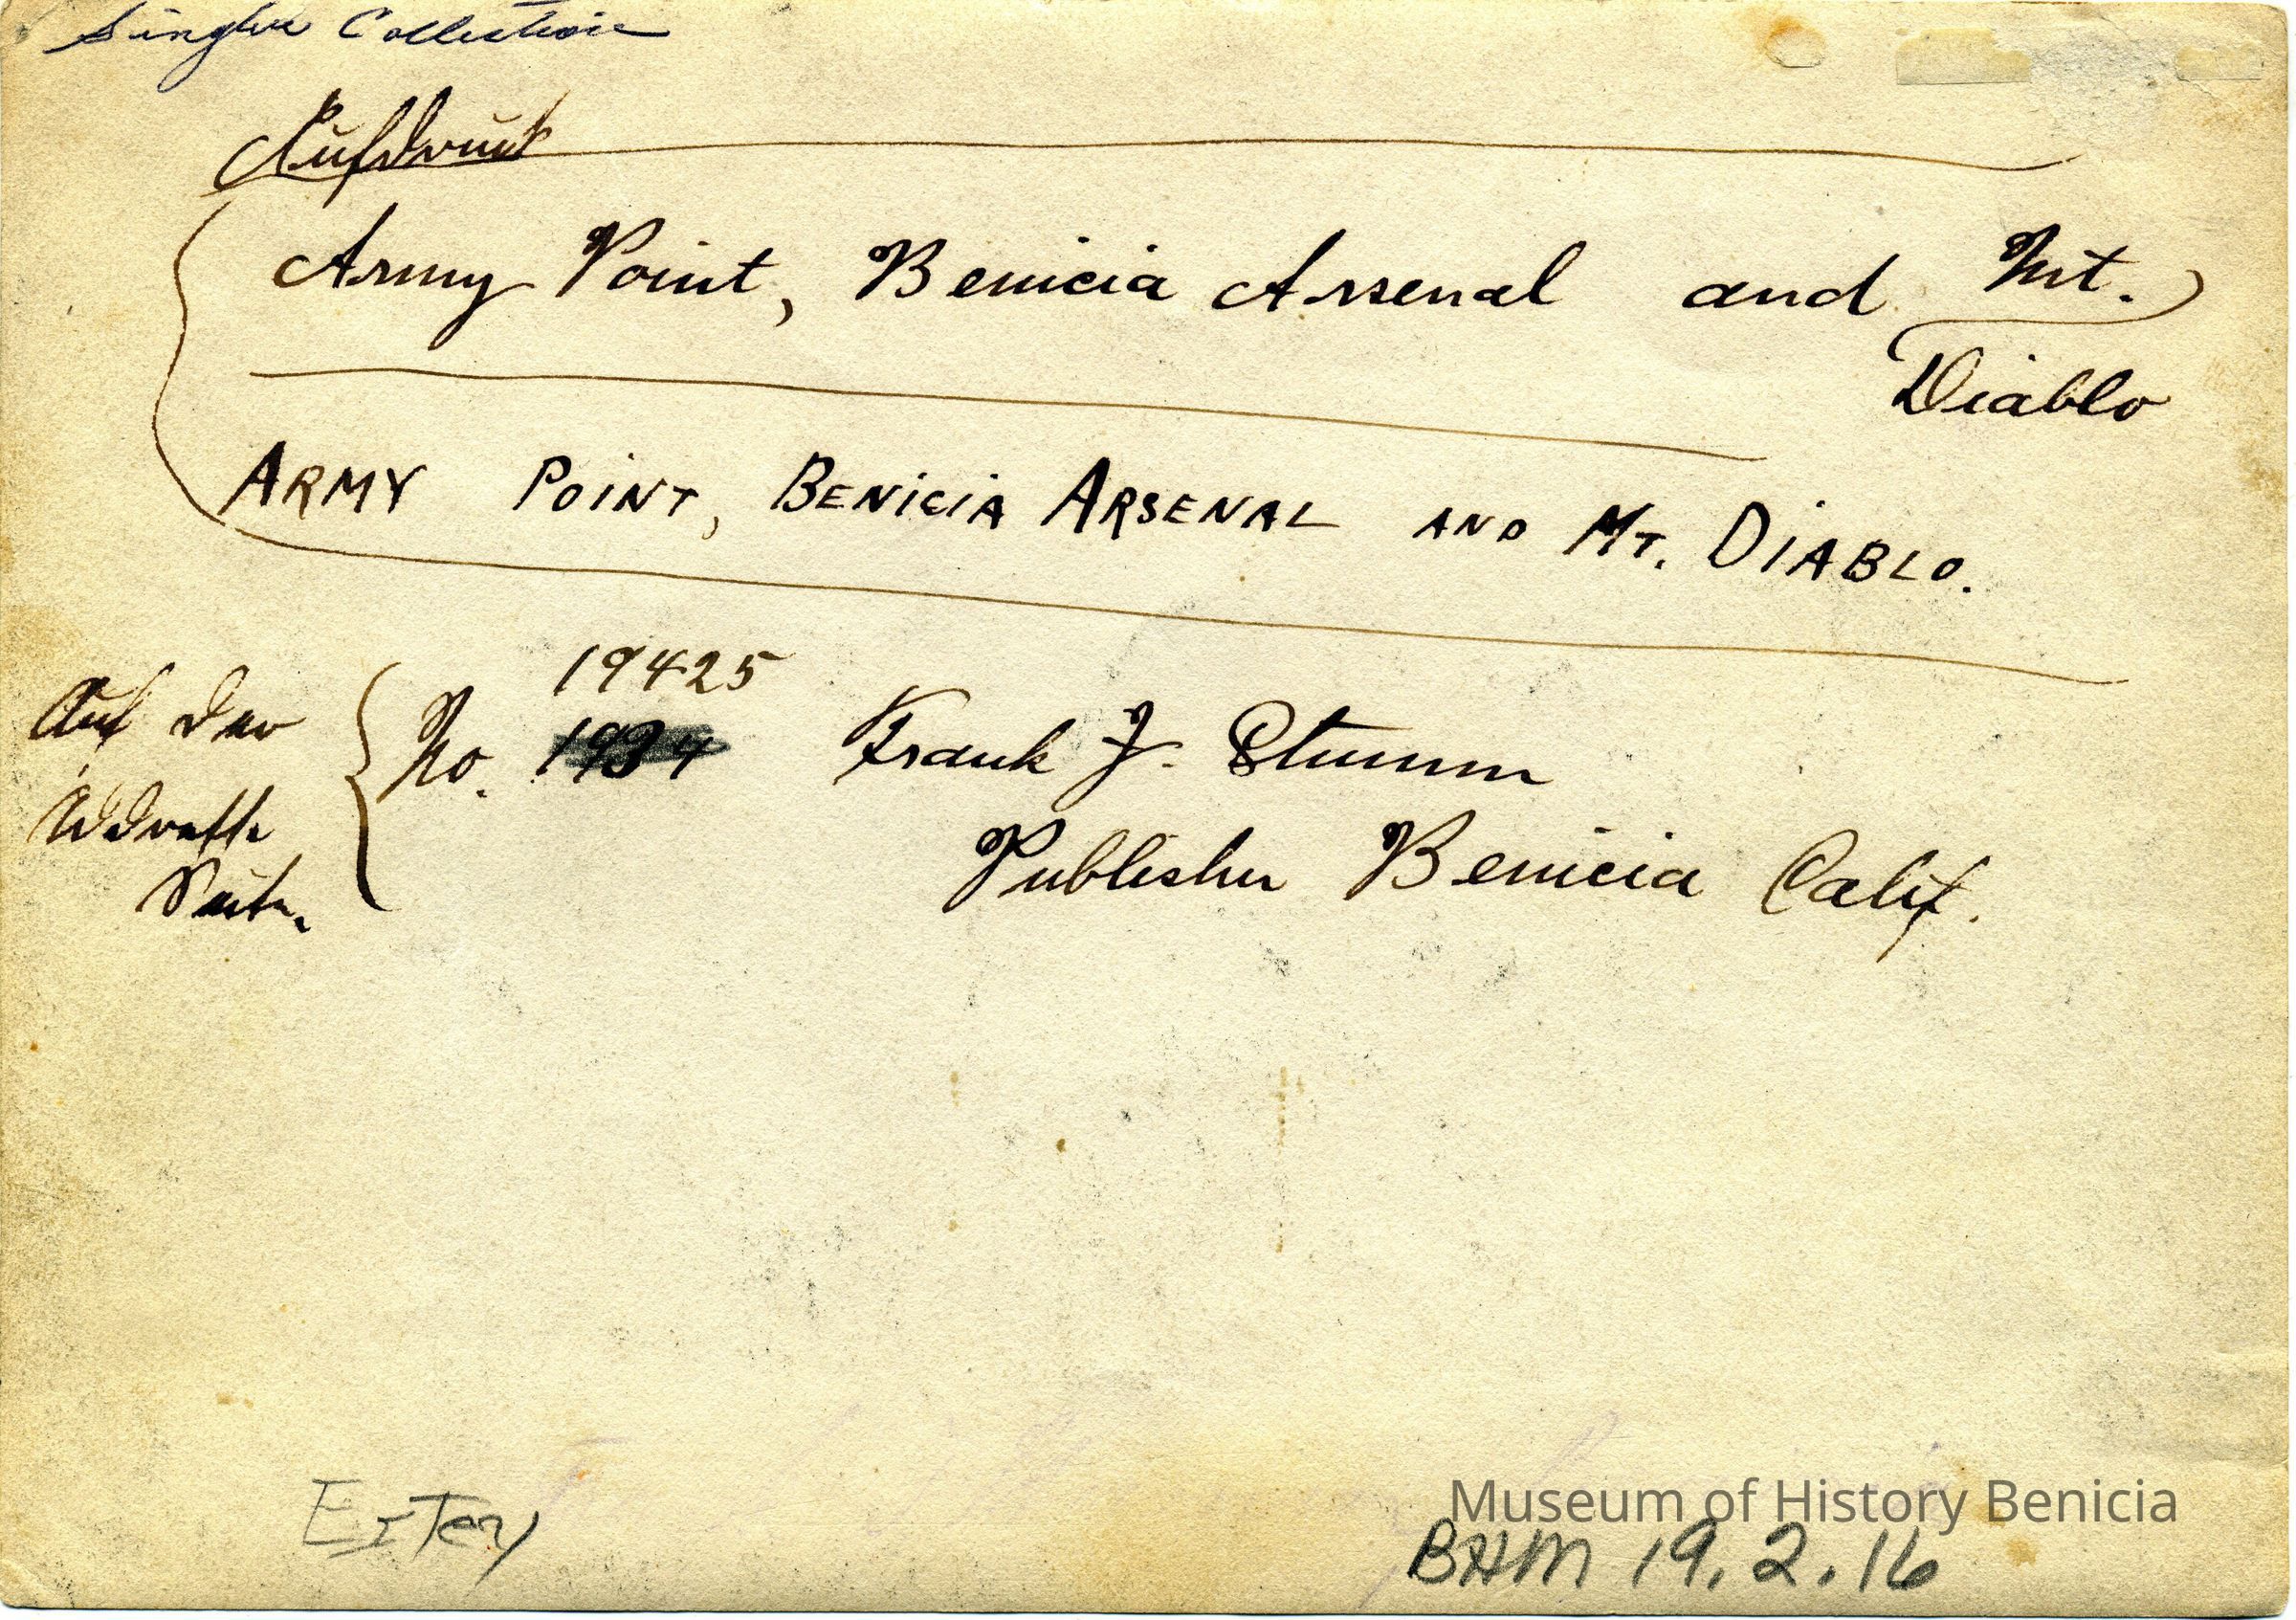 Collection
Aufdruck
Army Point, Benicia Arsenal and Mt.
Diablo
ARMY POINT, BENICIA ARSENAL AND MT. DIABLO.
19425
Auf der
Adresse
Seite.
No. 1934 Frank J. Stumm
Publisher Benicia Calif.
Museum of History Benicia
BHM 19.2.16